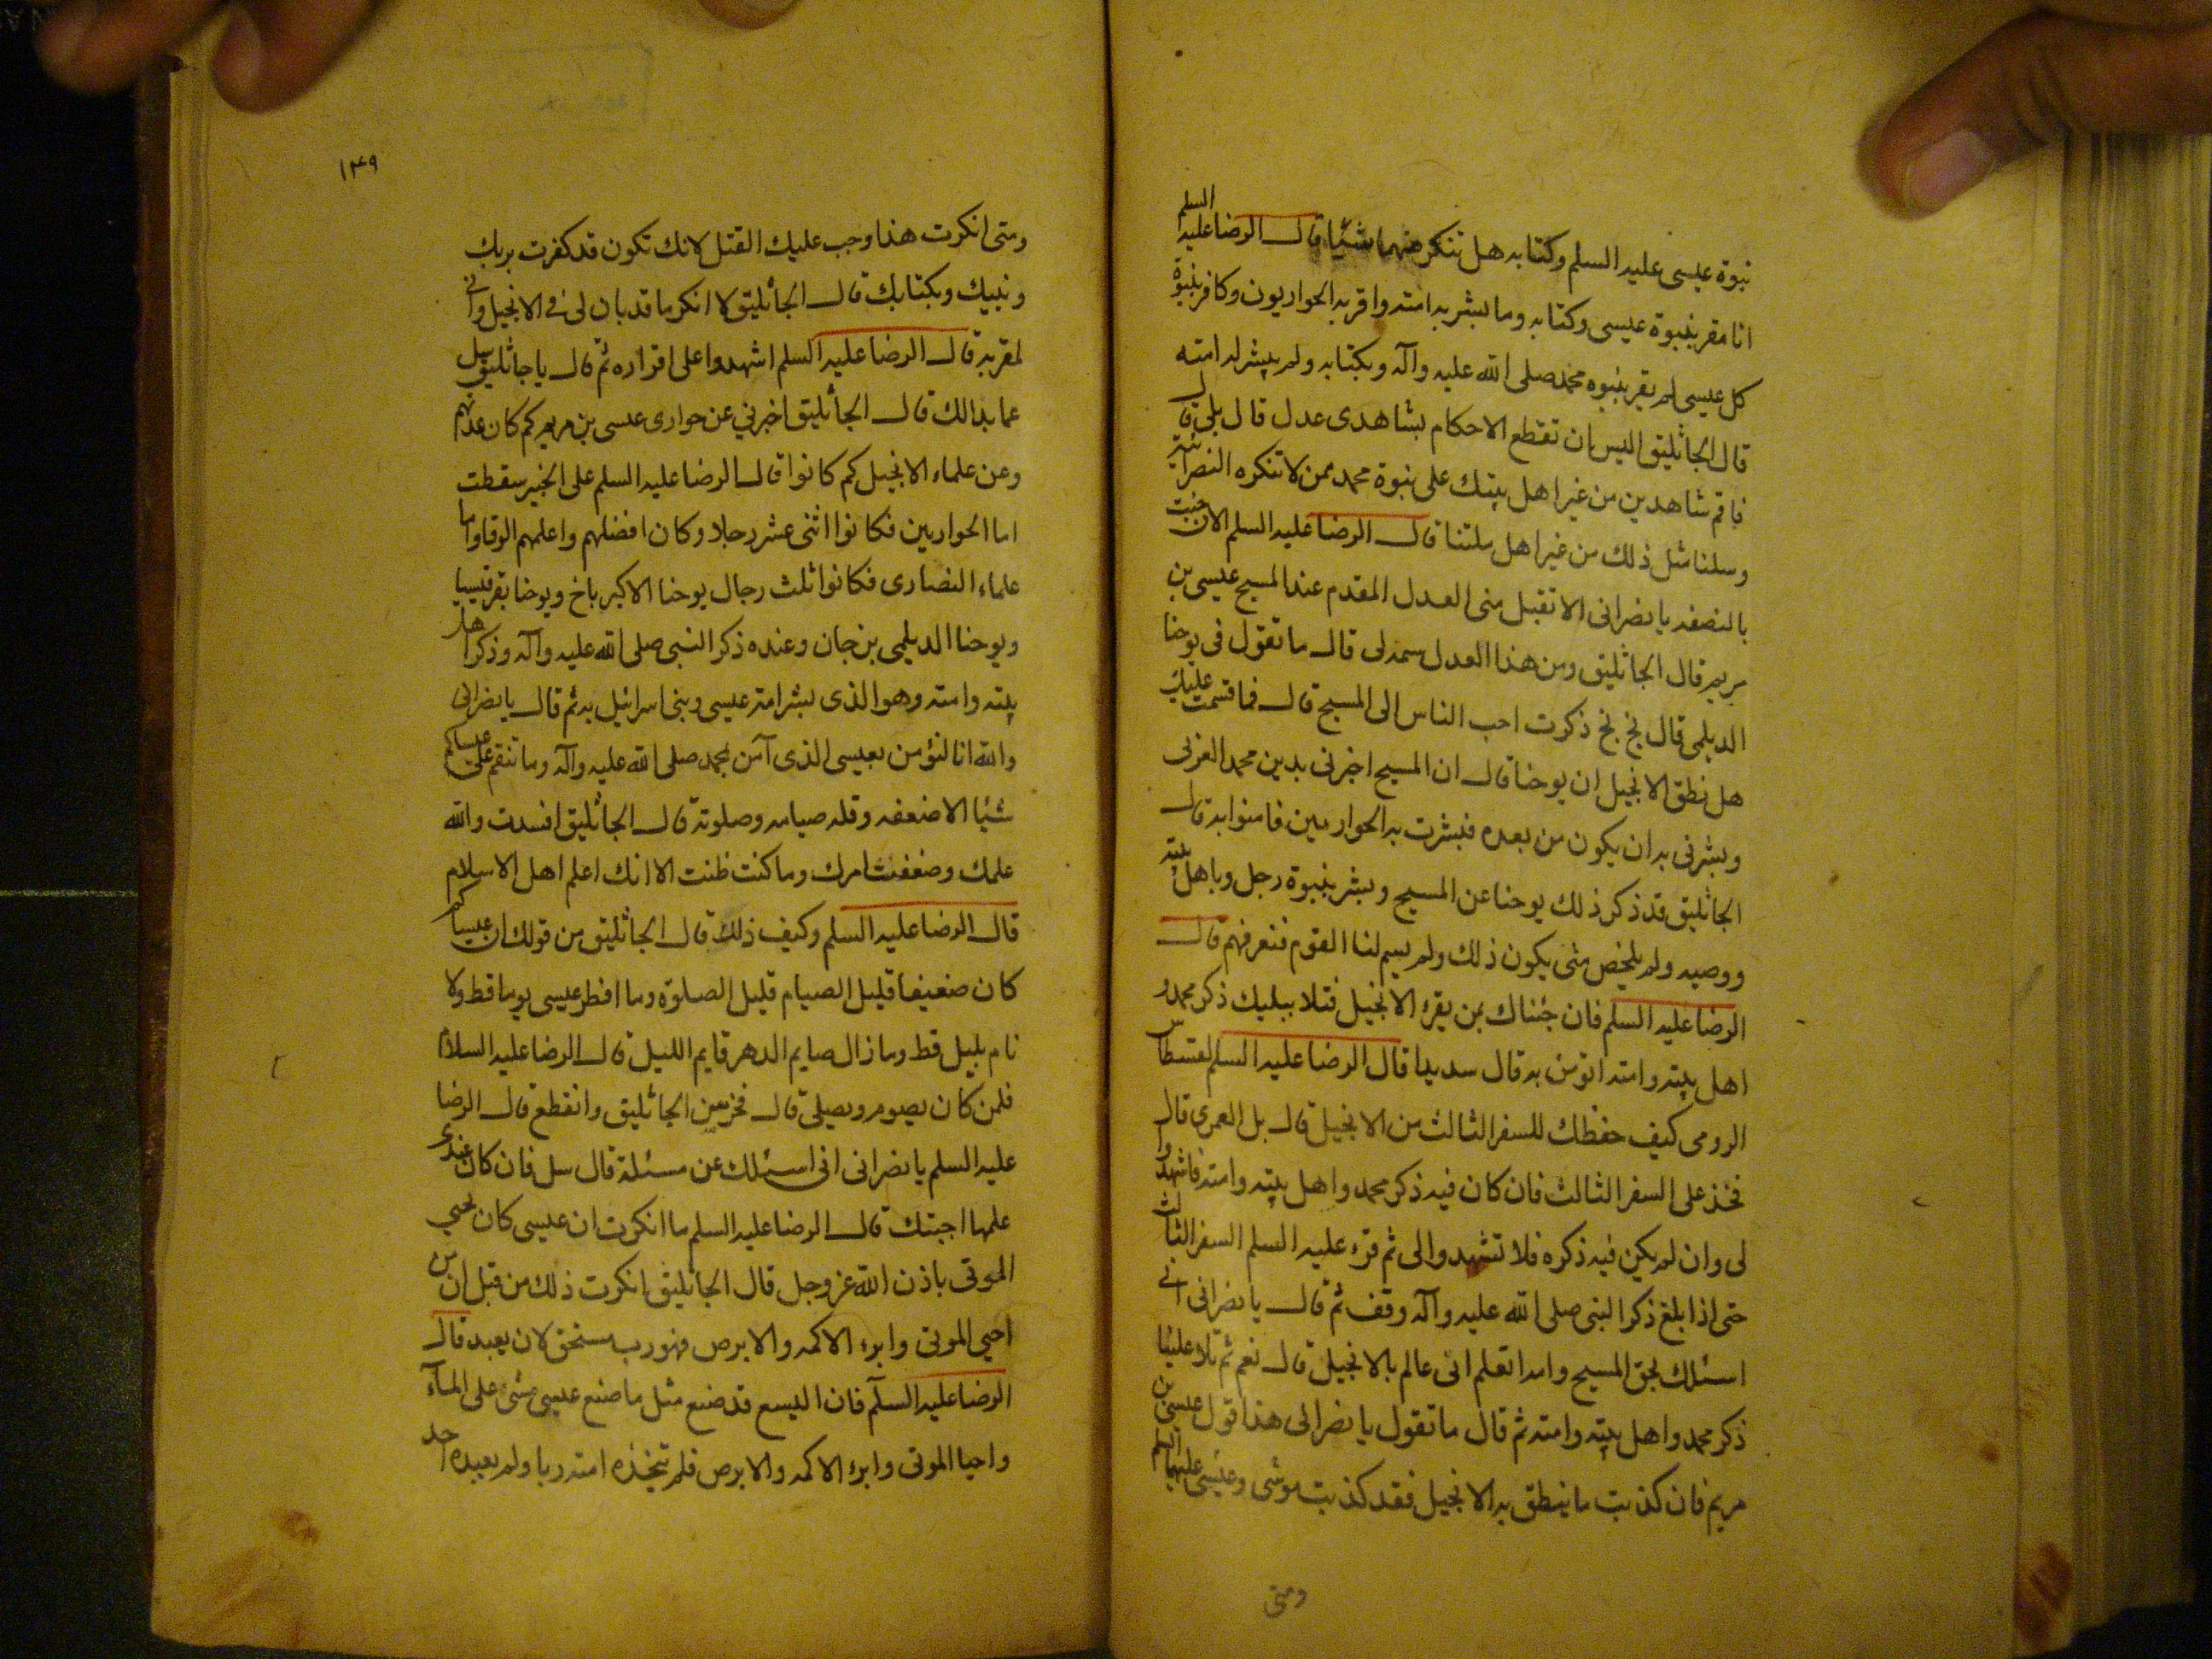 نبوة عيسى عليه السلم وكتابه هل تنكر منهما شيئا قال الرضا عليه السلم
انا مقر بنبوة عيسى وكتابه وما بشر به امته واقر به الحواريون وكافر بنبوة
كل عيسى لم يقر بنبوه محمد صلى الله عليه وآله وبكتابه ولم يبشر له امته
قال الجاثليق اليس ان تقطع الاحكام بشاهدى عدل قال بلى قال
فاقم شاهدين من غير اهل بيتك على نبوة محمد ممن لا تنكره النصرانية
وسلنا مثل ذلك من غير اهل ملتنا قال الرضا عليه السلم الان جئت
بالنصفه يا نصرانى الا تقبل منى العدل المقدم عند المسيح عيسى بن
مريم قال الجاثليق ومن هذا العدل سمه لى قال ما تقول فى يوحنا
الديلمى قال بخ بخ ذكرت احب الناس الى المسيح قال فاقسمت عليك
هل نطق الانجيل ان يوحنا قال ان المسيح اخبرنى بدين محمد العربى
وبشرنى به ان يكون من بعده فبشرت به الحواريين فامنوا به قال
الجاثليق قد ذكر ذلك يوحنا عن المسيح وبشر بنبوة رجل وباهل بيته
ووصيه ولم يلخص متى يكون ذلك ولم يسم لنا القوم فنعرفهم قال
الرضا عليه السلم فان جئناك بمن يقرء الانجيل فتلا عليك ذكر محمد و
اهل بيته وامته اتومن به قال سديدا قال الرضا عليه السلم لقسطاس
الرومى كيف حفظك للسفر الثالث من الانجيل قال بل العمرى قال
فخذ على السفر الثالث فان كان فيه ذكر محمد واهل بيته وامته فاشهدوا
لى وان لم يكن فيه ذكره فلا تشهدوا لى ثم قرء عليه السلم السفر الثالث
حتى اذا بلغ ذكر النبى صلى الله عليه وآله وقف ثم قال يا نصرانى انى
اسئلك بحق المسيح وامه اتعلم انى عالم بالانجيل قال نعم ثم تلا علينا
ذكر محمد واهل بيته وامته ثم قال ما تقول يا نصرانى هذا قول عيسى بن
مريم فان كذبت ما ينطق به الانجيل فقد كذبت موسى وعيسى عليهما السلم
ومتى
١٤٩
ومتى انكرت هذا وجب عليك القتل لانك تكون قد كفرت بربك
ونبيك وبكتابك قال الجاثليق لا انكر ما قد بان لى فى الانجيل وانى
لمقر به قال الرضا عليه السلم اشهدوا على اقراره ثم قال يا جاثليق سل
عما بدالك قال الجاثليق اخبرني عن حوارى عيسى بن مريم كم كان عدتهم
وعن علماء الانجيل كم كانوا قال الرضا عليه السلم على الخبير سقطت
اما الحواريين فكانوا اثنى عشر رجلا وكان افضلهم واعلمهم الوقا واما
علماء النصارى فكانوا ثلث رجال يوحنا الاكبر باخ ويوحنا بقرقيسيا
ويوحنا الديلمى بزجان وعنده ذكر النبى صلى الله عليه وآله وذكر اهل
بيته وامته وهو الذى بشر امة عيسى وبنى اسرائيل به ثم قال يا نصرانى
والله انا لنؤمن بعيسى الذى آمن بمحمد صلى الله عليه وآله وما ننقم على عيساكم
شئيا الا ضعفه وقله صيامه وصلوته قال الجاثليق افسدت والله
علمك وضعفت امرك وما كنت ظننت الا انك اعلم اهل الاسلام
قال الرضا عليه السلم وكيف ذلك قال الجاثليق من قولك ان عيساكم
كان ضعيفا قليل الصيام قليل الصلوة وما افطر عيسى يوما قط ولا
نام بليل قط وما زال صايم الدهر قايم الليل قال الرضا عليه السلام
فلمن كان يصوم ويصلى قال فخرس الجاثليق وانقطع قال الرضا
عليه السلم يا نصرانى انى اسئلك عن مسئلة قال سل فان كان عندى
علمها اجبتك قال الرضا عليه السلم ما انكرت ان عيسى كان يحيي
الموتى باذن الله عز وجل قال الجاثليق انكرت ذلك من قبل ان من
احيي الموتى وابرء الاكمه والابرص فهو رب مستحق لان يعبد قال
الرضا عليه السلم فان اليسع قد صنع مثل ما صنع عيسى مشى على المآء
واحيا الموتى وابرء الاكمه والابرص فلم تتخذه امته ربا ولم يعبده احد